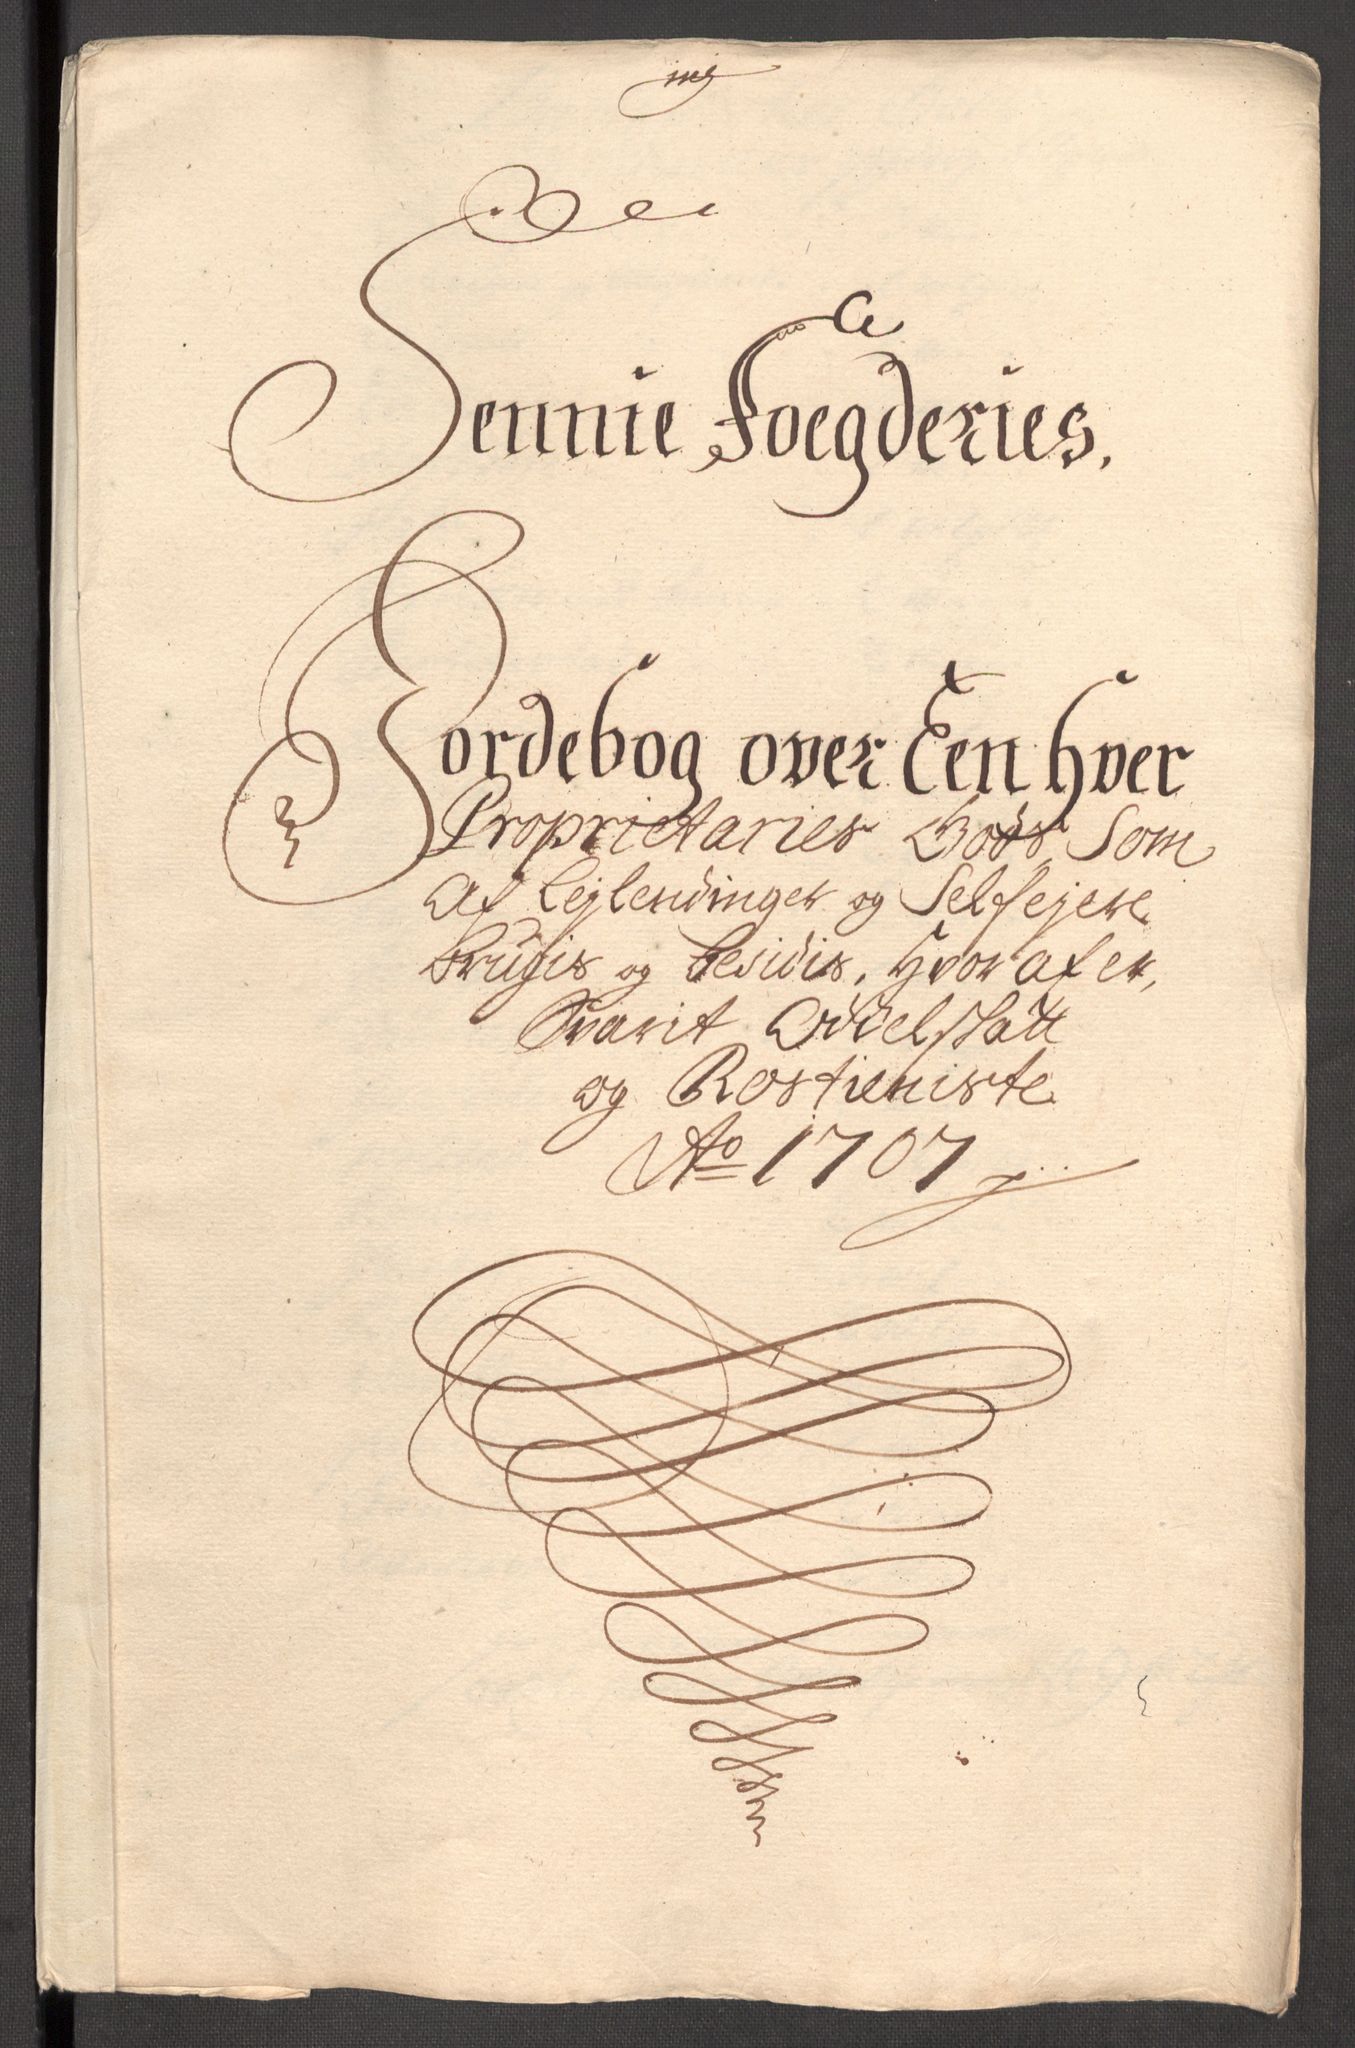 Sennie Foegderies.
Jordebog over Een hver
Proprietaries Gods Som
Af Lejlendinger og Selfejere
Brugis og besidis, hvor af er,
Svarit Oddelskatt
og Rostieniste
Ao 1707